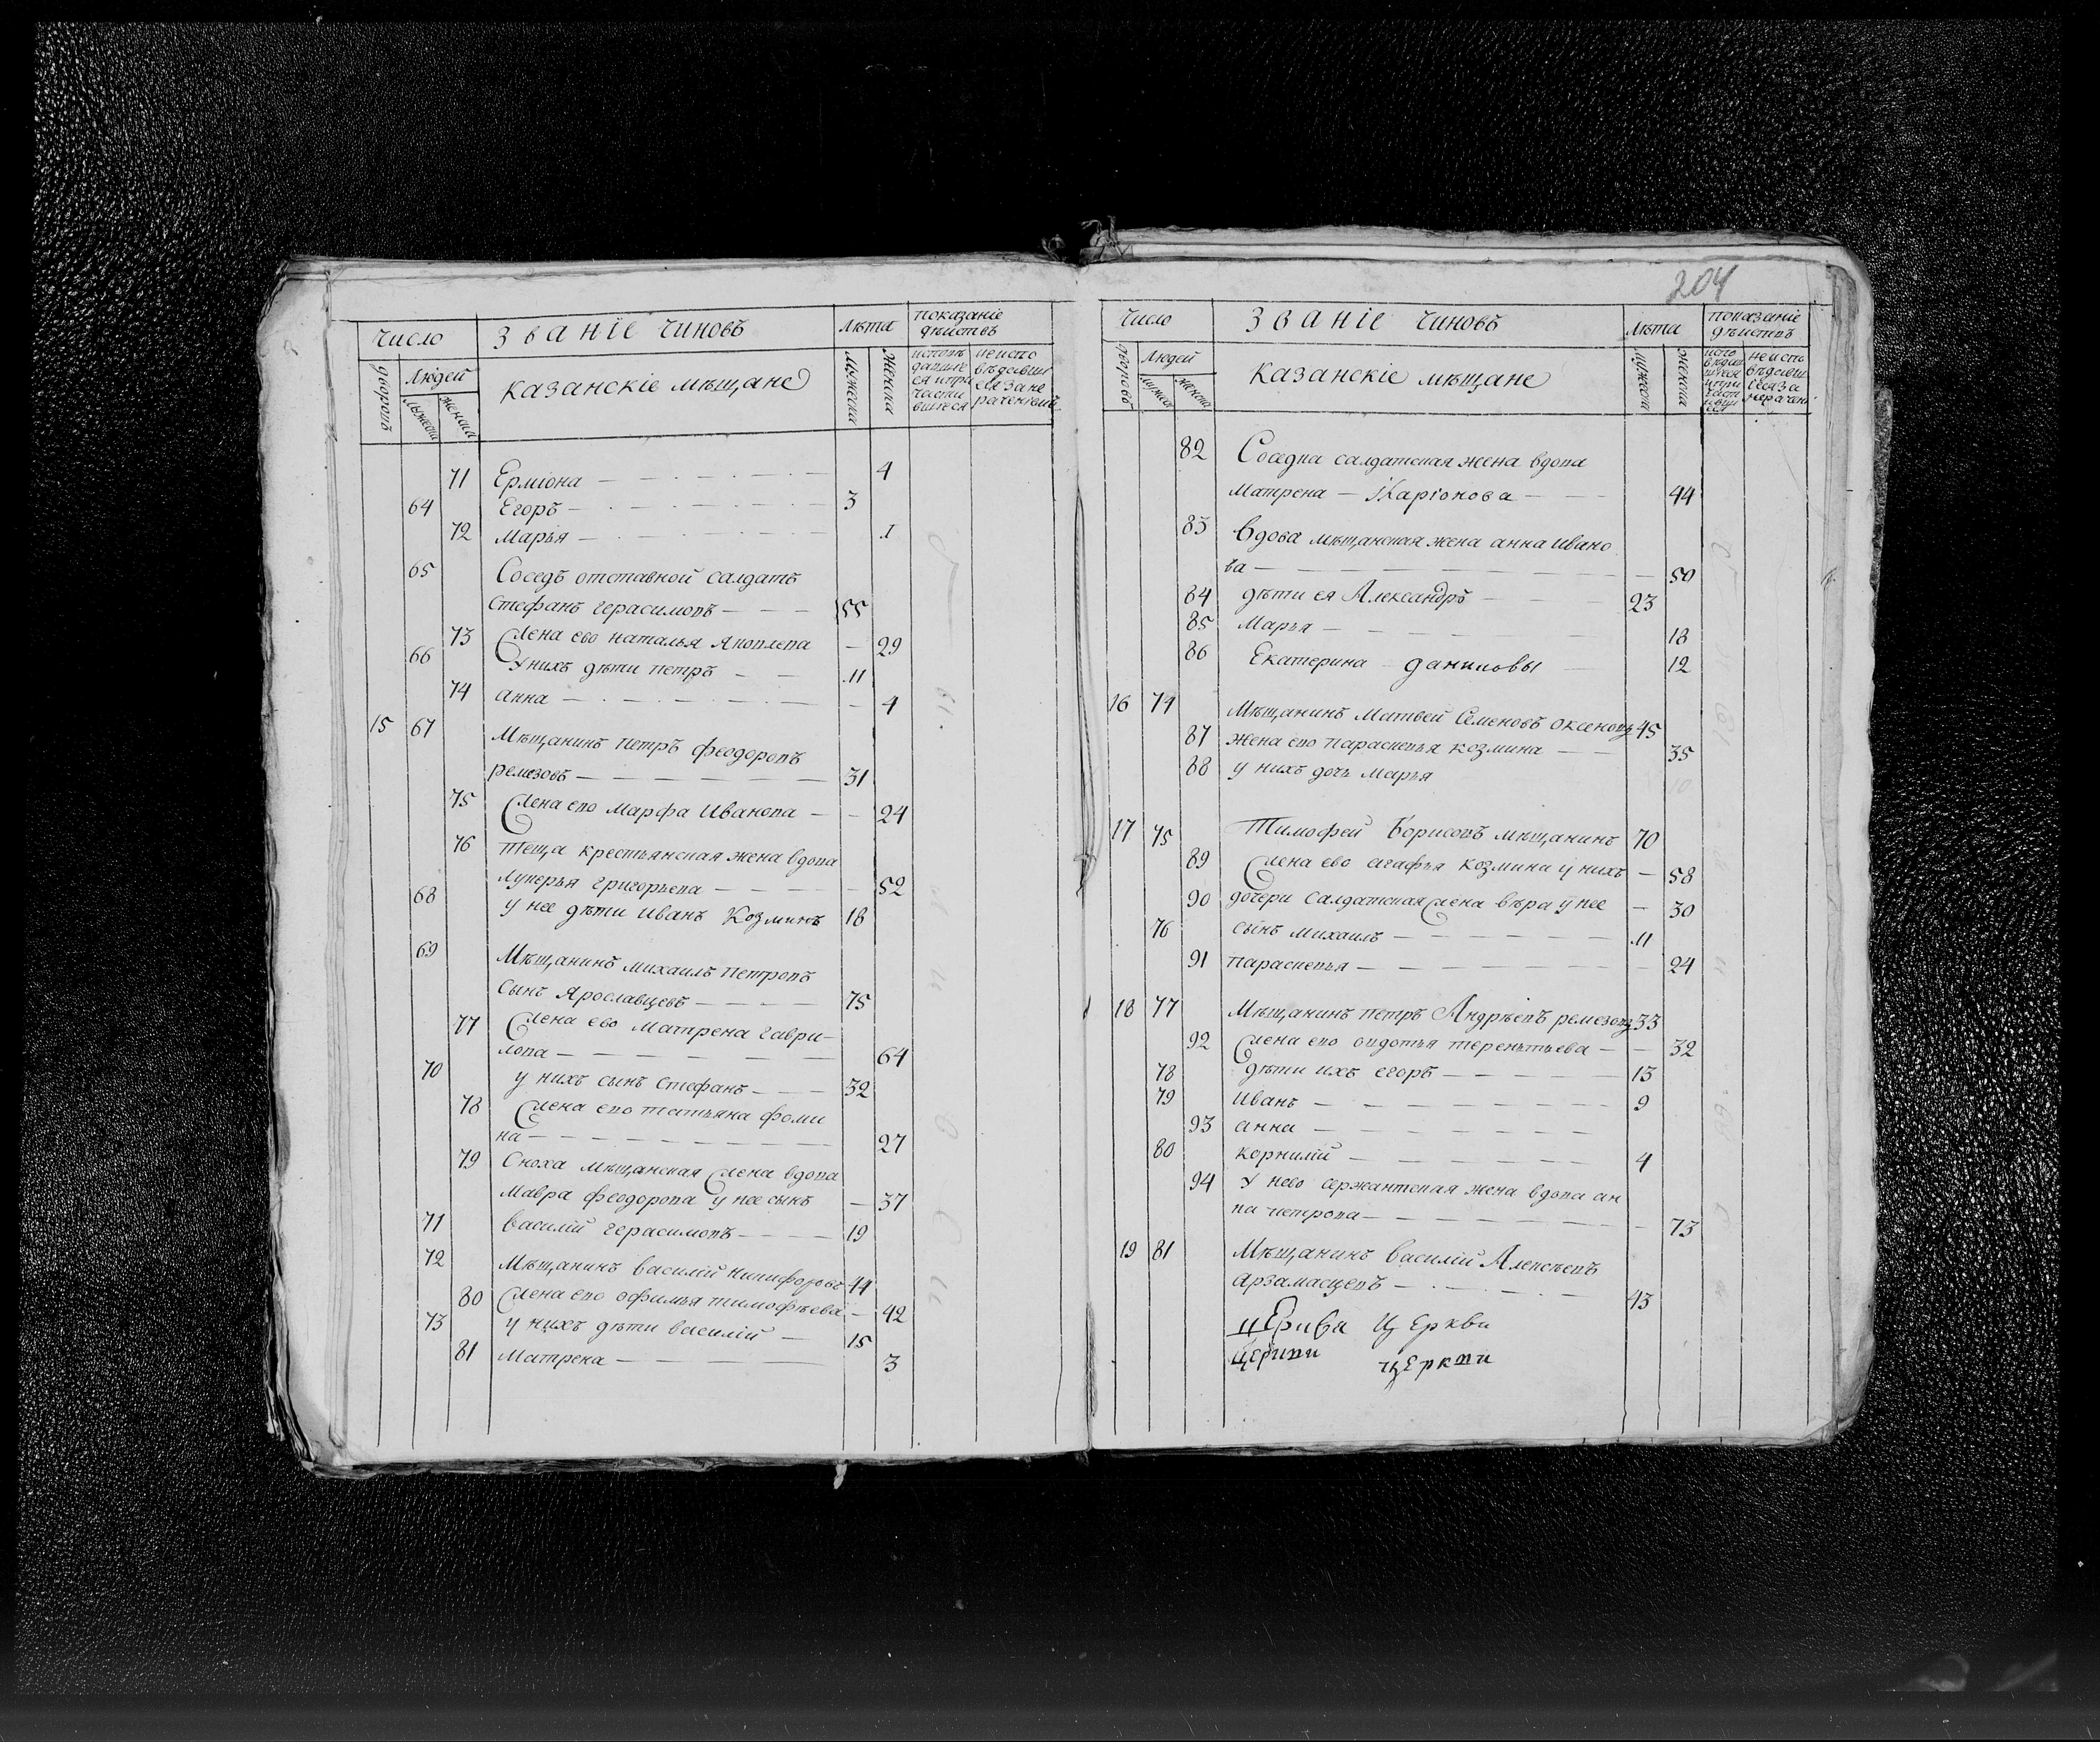 Число Званіе чиновъ Лѣта показаніе
дѣиствъ
дворовъ Людей казанскіе мѣщане мужеска женска исповѣ неиспо
давшіе вѣдавшіи
ся и при ся за не
части раченіемъ
вшіеся
мужеска женска
71 Ермиона — 4
64 Егоръ — 3
72 Марья — 1
65 Соседъ отставной салдатъ
Стефанъ герасимовъ — 55
73 Жена ево наталья Яковлева — 29
66 У нихъ дѣти петръ — 11
74 анна — 4
15 67 Мѣщанинъ петръ феодоровъ
ремезовъ — 31
75 Жена ево Марфа Иванова — 24
76 теща крестьянская жена вдова
Лукерья григорьева — 52
68 у нее дѣти иванъ Козминъ 18
69 Мѣщанинъ михаилъ петровъ
сынъ Ярославцевъ — 75
77 Жена ево Матрена гаври-
лова — 64
70 у нихъ сынъ стефанъ — 32
78 Жена ево татьяна фоми
на — 27
79 Сноха мѣщанская жена вдова
Мавра феодорова у нее сынъ — 37
71 василій герасимовъ — 19
72 Мѣщанинъ василій никифоровъ 44
80 Жена ево офимья тимофѣева — 42
73 у нихъ дѣти василій — 15
81 Матрена — 3
204
Число Званіе чиновъ Лѣта показаніе
дѣиствъ
дворовъ Людей казанскіе мѣщане мужеска женска испо неиспо
вѣдав вѣдавши
шіеся іеся за
и при нерачен
част
ивши
еся
мужеска женска
82 Соседка салдатская жена вдова
Матрена — Иларіонова — 44
83 Вдова мѣщанская жена анна ивано
ва — 50
84 дѣти ея Александръ — 23
85 Марья — 18
86 Екатерина даниловы — 12
16 74 Мѣщанинъ Матвей Семеновъ оксеновъ 45
87 жена ево параскевья козмина — 35
88 у нихъ дочь марья 10
17 75 Тимофей Борисовъ мѣщанинъ 70
89 Жена ево агафья козмина у нихъ — 58
90 дочери салдатская жена вѣра у нее — 30
76 сынъ михаилъ — 11
91 параскевья — 24
18 77 Мѣщанинъ петръ Андрѣевъ ремезовъ 33
92 Жена ево овдотья терентьева — 32
78 дѣти ихъ егоръ — 13
79 Иванъ — 9
93 анна —
80 корнилій — 4
94 У нево сержантская жена вдова ан
на петрова — 73
19 81 Мѣщанинъ василій Алексѣевъ
арзамасцевъ — 43
церква Церкви
церкви церкви